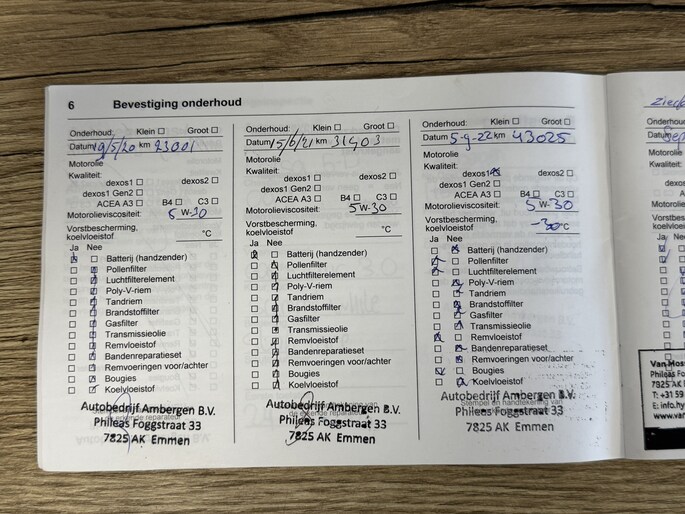 6 Bevestiging onderhoud
Onderhoud: Klein ☐ Groot ☐
Datum 19/5/20 km 23001
Motorolie
Kwaliteit:
dexos1 ☐ dexos2 ☐
dexos1 Gen2 ☐
ACEA A3 ☐ B4 ☐ C3 ☐
Motorolieviscositeit: 5 W-30
Vorstbescherming,
koelvloeistof °C
Ja Nee
Batterij (handzender)
Pollenfilter
Luchtfilterelement
Poly-V-riem
Tandriem
Brandstoffilter
Gasfilter
Transmissieolie
Remvloeistof
Bandenreparatieset
Remvoeringen voor/achter
Bougies
Koelvloeistof
Autobedrijf Ambergen B.V.
Phileas Foggstraat 33
7825 AK Emmen
Onderhoud: Klein ☐ Groot ☐
Datum 15/6/21 km 31903
Motorolie
Kwaliteit:
dexos1 ☐ dexos2 ☐
dexos1 Gen2 ☐
ACEA A3 ☐ B4 ☐ C3 ☐
Motorolieviscositeit: 5 W-30
Vorstbescherming,
koelvloeistof °C
Ja Nee
Batterij (handzender)
Pollenfilter
Luchtfilterelement
Poly-V-riem
Tandriem
Brandstoffilter
Gasfilter
Transmissieolie
Remvloeistof
Bandenreparatieset
Remvoeringen voor/achter
Bougies
Koelvloeistof
Autobedrijf Ambergen B.V.
Phileas Foggstraat 33
7825 AK Emmen
Onderhoud: Klein ☐ Groot ☐
Datum 5-9-22 km 43025
Motorolie
Kwaliteit:
dexos1 ☒ dexos2 ☐
dexos1 Gen2 ☐
ACEA A3 ☐ B4 ☐ C3 ☐
Motorolieviscositeit: 5 W-30
Vorstbescherming,
koelvloeistof -30°C
Ja Nee
Batterij (handzender)
Pollenfilter
Luchtfilterelement
Poly-V-riem
Tandriem
Brandstoffilter
Gasfilter
Transmissieolie
Remvloeistof
Bandenreparatieset
Remvoeringen voor/achter
Bougies
Koelvloeistof
Stempel en handtekening van
Autobedrijf Ambergen B.V.
Phileas Foggstraat 33
7825 AK Emmen
Datum
Motorolie
Kwaliteit:
Ja Nee
Phileas Fo
7825 AK
T: +31 59
E: info.hy
www.van